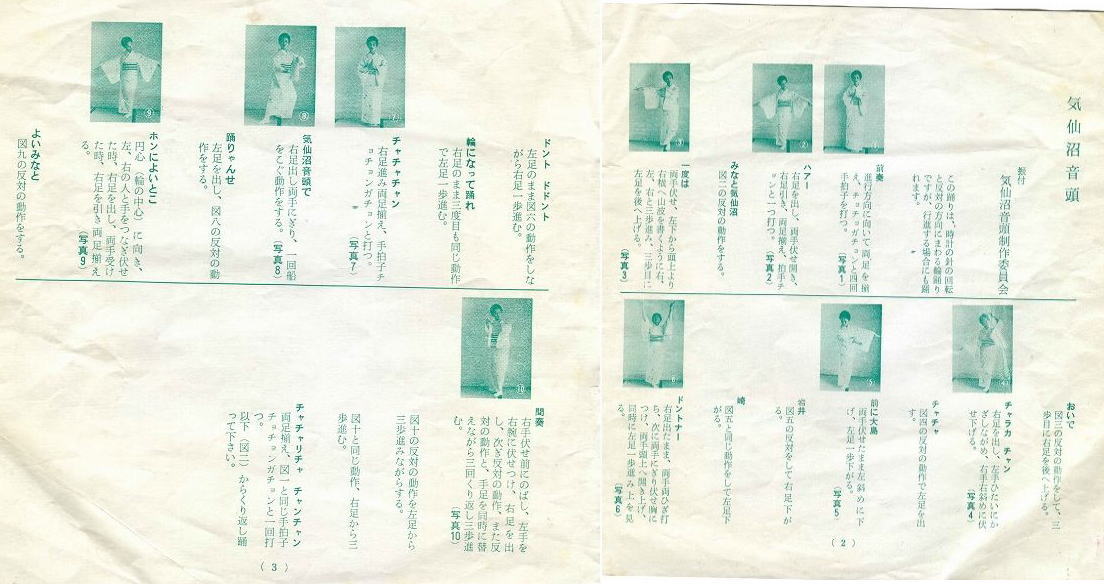 気仙沼音頭
振付
気仙沼音頭制作委員会
この踊りは、時計の針の回転
と反対の方向にまわる輪踊り
ですが、行進する場合にも踊
れます。
前奏
進行方向に向いて両足を揃
え、チョチョガチョンと四回
手拍子を打つ。
(写真1)
ハアー
右足を出し、両手伏せ開き、
右足引き、両足揃え、拍手チ
ョンと一つ打つ。
(写真2)
みなと気仙沼
図二の反対の動作をする。
一度は
両手伏せ、左下から頭上より
右横へ山波を書くように右、
左、右と三歩進み、三歩目に
左足を後へ上げる。
(写真3)
おいで
図三の反対動作をして、三
歩目に右足を後へ上げる。
チャラカ チャン
右足を出し、左手ひたいにか
ざしながめ、右手右斜めに伏
せ下げる。
(写真4)
チャチャ
図四の反対の動作で左足を出
す。
前に大島
両手伏せたまま左斜めに下
げ、左足一歩下がる。
(写真5)
岩井
図五の反対をして右足下が
る。
崎
図五と同じ動作をして左足下
がる。
ドントナー
右足出たまま、両手両ひざ打
ち、次に両手にぎり伏せ胸に
つけ、両手頭上へ開き上げ、
同時に左足一歩進み上を見
る。
(写真6)
(2)
ドント ドドント
左足のまま図六の動作をしな
がら右足一歩進む。
輪になって踊れ
右足のまま三度目も同じ動作
で左足一歩進む。
チャチャチャン
右足進み両足揃え、手拍子チ
ョチョンガチョンと打つ。
(写真7)
気仙沼音頭で
右足出し両手にぎり、一回船
をこぐ動作をする。
(写真8)
踊りゃんせ
左足を出し、図八の反対の動
作をする。
ホンによいとこ
円心(輪の中心)に向き、
左、右の人と手をつなぎ伏せ
た時、右足を出し、両手受け
た時、右足を引き両足揃え
る。
(写真9)
よいみなと
図九の反対の動作をする。
間奏
右手伏せ前にのばし、左手を
右腕に伏せつけ、右足を出
し、次ぎ反対の動作、また反
対の動作と、手足を同時に替
えながら三回くり返し三歩進
む。
(写真10)
図十の反対の動作を左足から
三歩進みながらする。
図十と同じ動作、右足から三
歩進む。
チャチャリチャ チャンチャン
両足揃え、図一と同じ手拍子
チョチョンガチョンと一回打
つ。
以下(図二)からくり返し踊
って下さい。
(3)